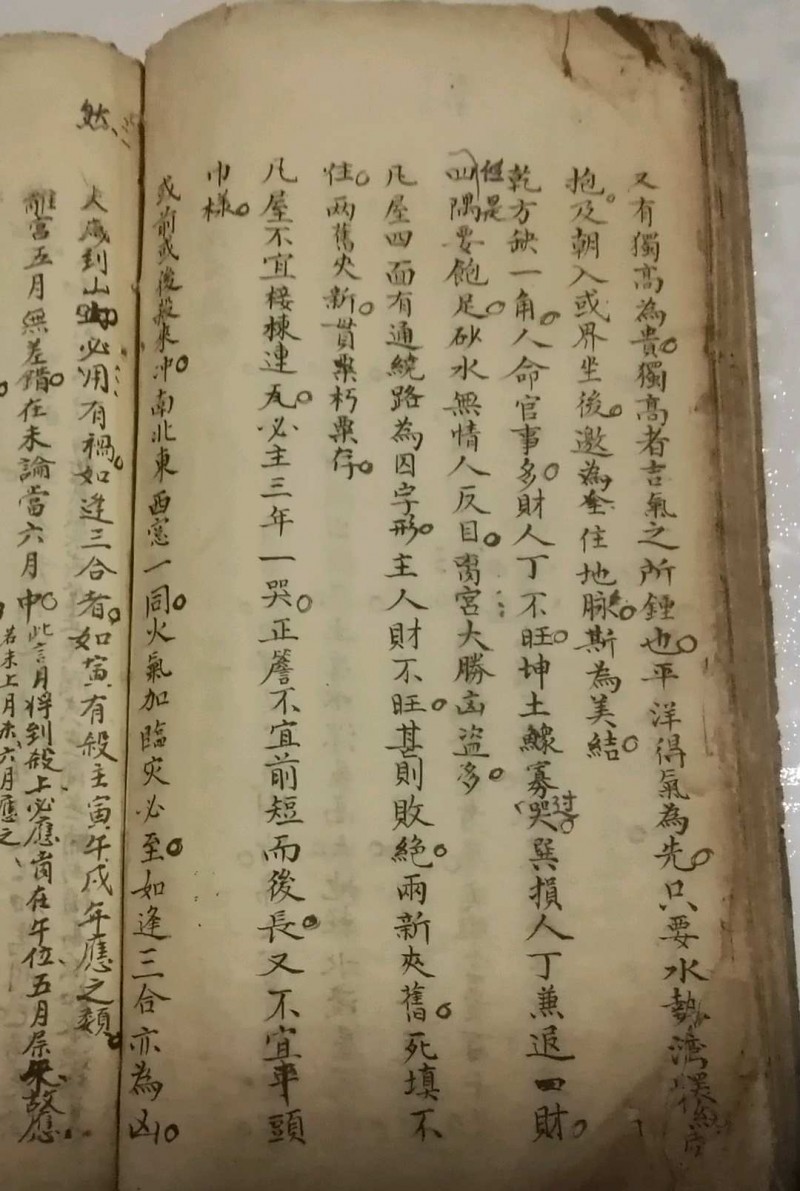 又有獨高為貴。獨高者吉氣之所鍾也。平洋得氣為先。只要水勢湾環
抱。及朝入或界坐後。邀為全住地脉。斯為美結。
乾方缺一角。人命官事多。財人丁不旺。坤土鰥寡哭过。巽損人丁兼退田財。
但是四隅要飽足。砂水無情人反目。离宮大勝凶盜多。
凡屋四面有通繞路為囚字形。主人財不旺。甚則敗絕。兩新夾舊。死填不
住。兩舊夾新。貫粟朽粟存。
凡屋不宜接棟連瓦。必主三年一哭。正簷不宜前短而後長。又不宜車頭
巾樣。
或前或後殺來冲。南北東西憲一同。火氣加臨灾必至。如逢三合亦為凶。
然
大歲到山必用有禍。如逢三合者。如寅有殺主寅午戌年應之類。
離宮五月無差錯。在未論當六月中。此言月將到殺上必應崗在午位、五月屎來故應
若未上月未、六月應之、